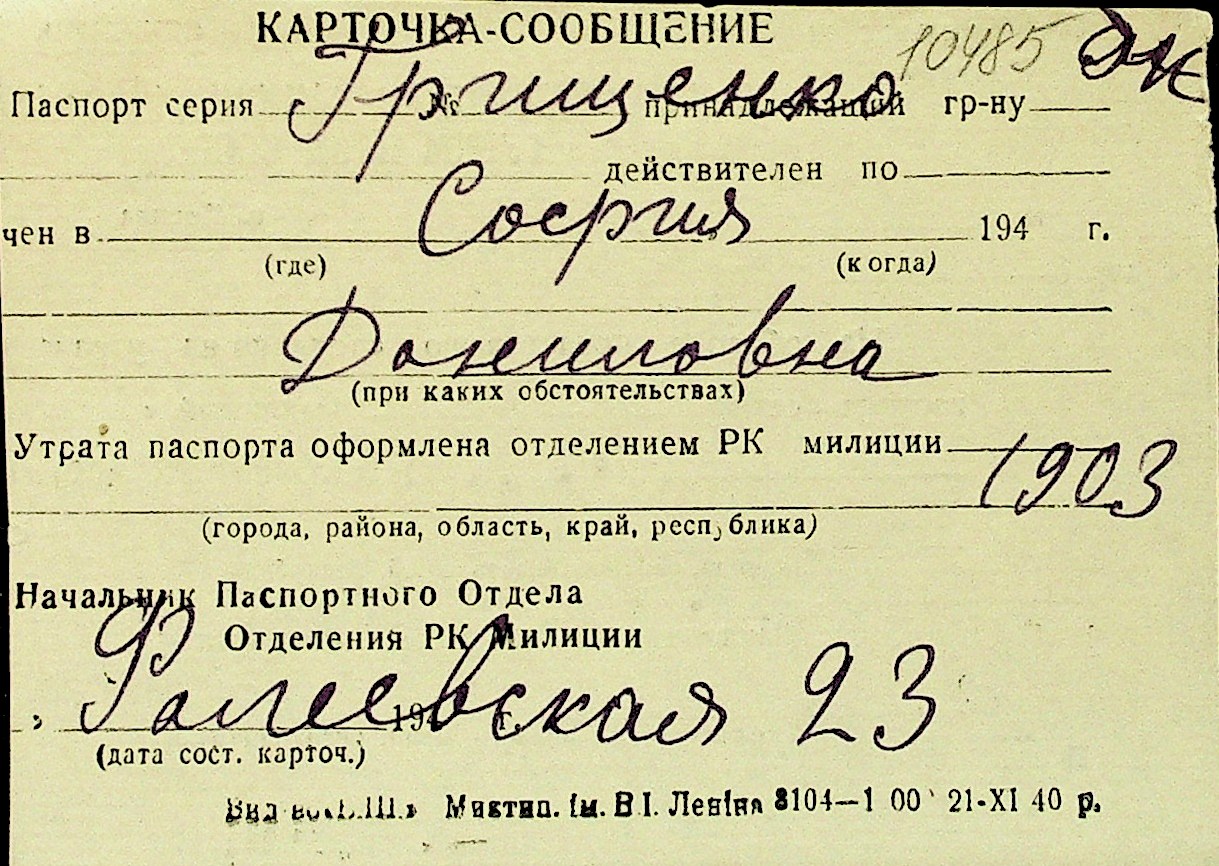 КАРТОЧКА-СООБЩЕНИЕ
10485
Паспорт серия № принадлежащий гр-ну
Грищенко
действителен по
София
чен в 194 г.
(где) (когда)
Даниловна
(при каких обстоятельствах)
Утрата паспорта оформлена отделением РК милиции
1903
(города, района, область, край, республика)
Начальник Паспортного Отдела
Отделения РК Милиции
194 г.
23
(дата сост. карточ.)
Миктип. ім. В І. Леніна 8104—1 00 21-XI 40 р.